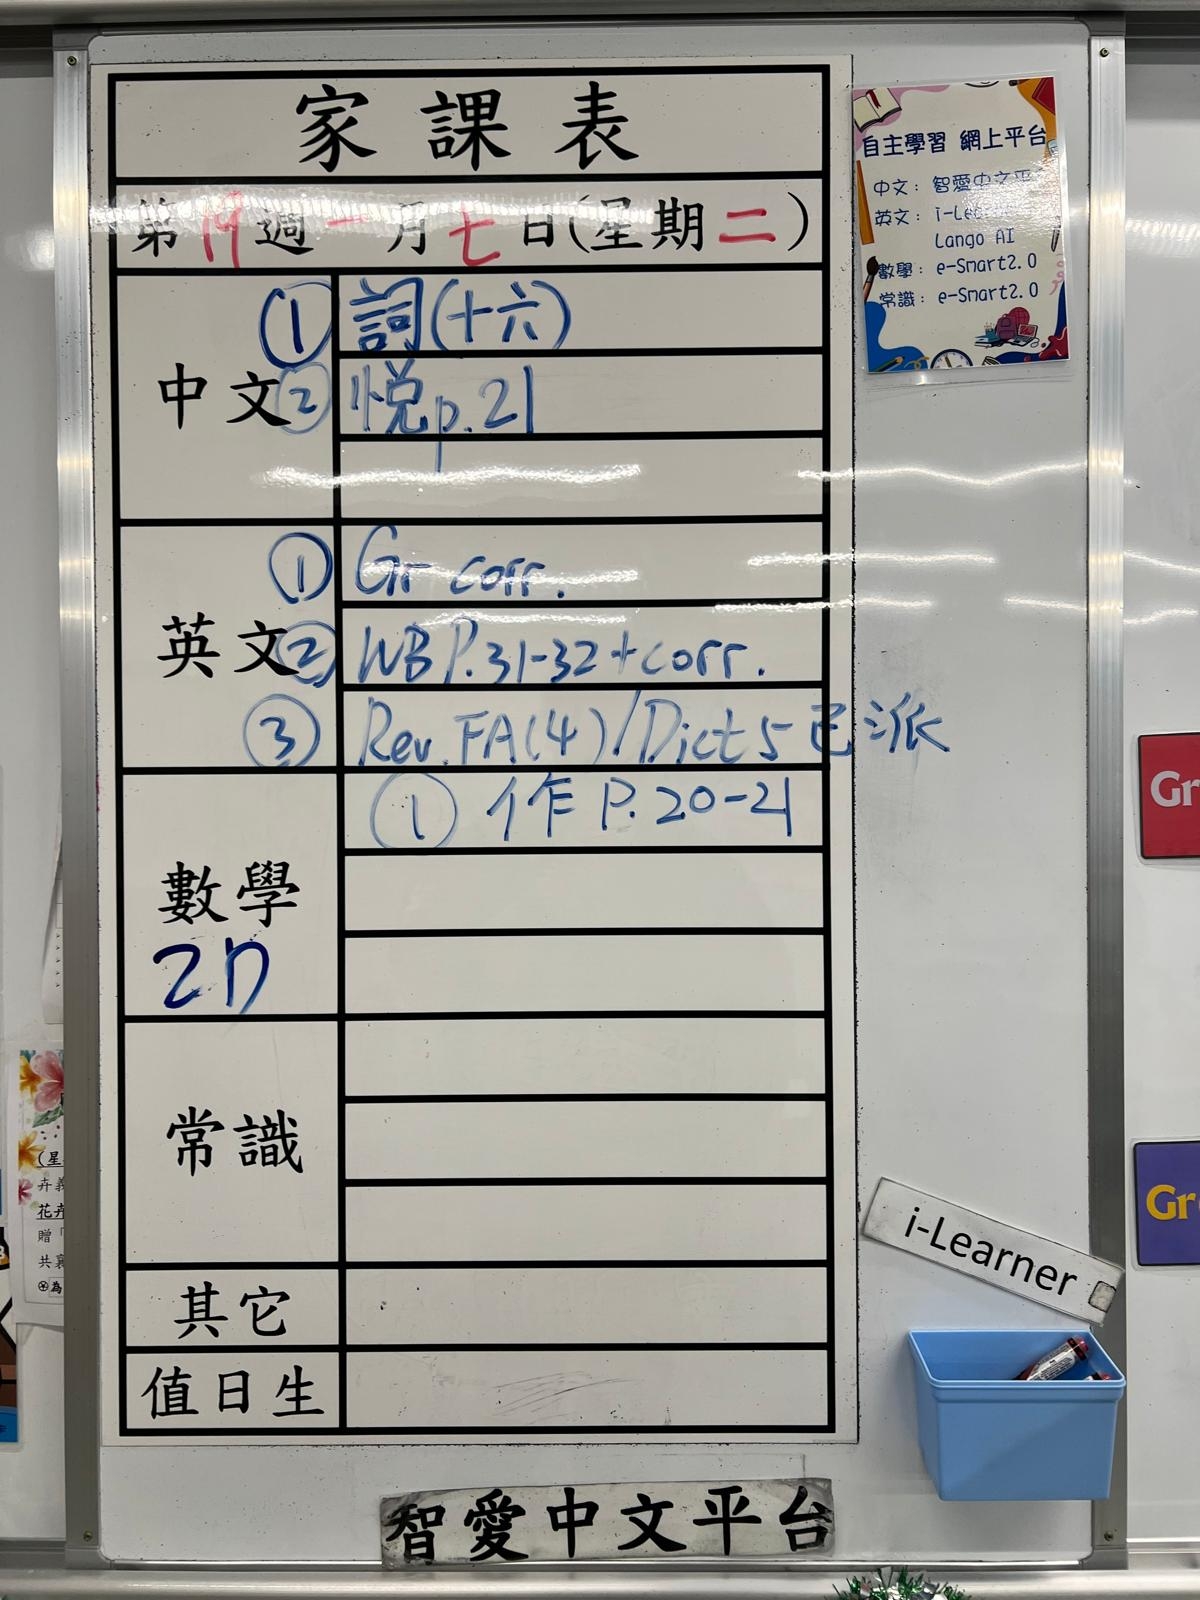 家課表
第19週一月七日(星期二)
中文
① 詞(十六)
② 悦p.21
英文
① Gr corr.
② WB P.31-32+corr.
③ Rev. FA(4)/Dict 5 已派
數學
2D
① 作 P.20-21
常識
其它
值日生
自主學習 網上平台
中文：智愛中文平
英文：i-Le
Lango AI
數學：e-Smart2.0
常識：e-Smart2.0
i-Learner
智愛中文平台
Gr
Gr
(星
卉義
花卉
贈「
共襄